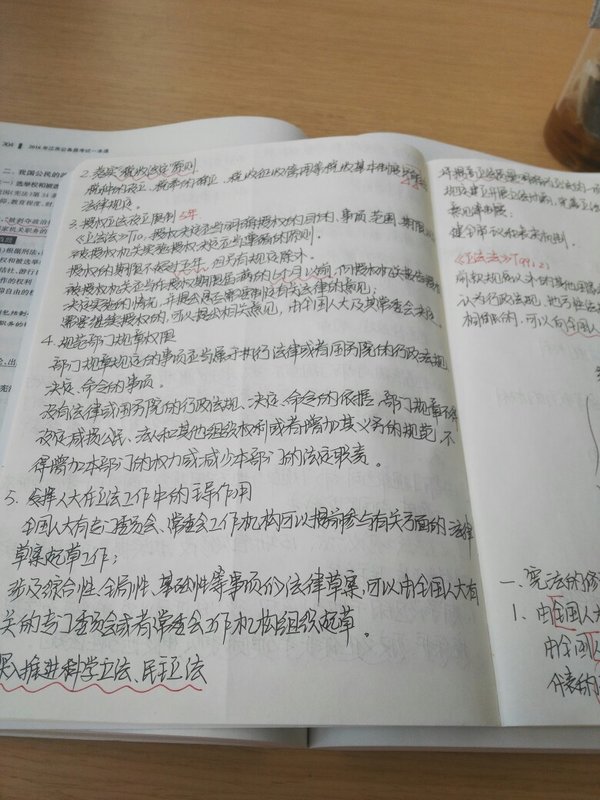 304 2016年江苏公务员考试一本通
二、我国公民的
(一) 选举权和被选
2. 落实“税收法定”原则
税种的设立、税率的确定、税收征收管理等税收基本制度
法律规定。
3. 授权立法设立限制 5年
《立法法》T10, 授权决定应当明确授权的目的、事项、范围、期限
被授权机关实施授权决定应当遵循的原则。
授权的期限不超过五年, 但另有规定除外。
被授权机关应当在授权期限届满的6个月以前, 向授权机关报告授权
决定实施的情况, 并提出是否需要制定有关法律的意见;
需要继续授权的, 可以提出相关意见, 由全国人大及其常委会决定。
4. 规范部门规章权限
部门规章规定的事项应当属于执行法律或者国务院的行政法规、
决定、命令的事项。
没有法律或国务院的行政法规、决定、命令的依据, 部门规章不得
设定减损公民、法人和其他组织权利或者增加其义务的规范, 不
得增加本部门的权力或减少本部门的法定职责。
5. 发挥人大在立法工作中的主导作用
全国人大有专门委员会、常委会工作机构可以提前参与有关方面的法律
草案起草工作;
涉及综合性、全局性、基础性等事项的法律草案, 可以由全国人大有
关的专门委员会或者常委会工作机构组织起草。
深入推进科学立法、民主立法
意见等制度。
《立法法》T99: 2)
前款规定以外的其他国
认为行政法规、地方性法
相抵触的, 可以向全国人
一、宪法的修
1. 由全国人大
由全国人
代表的